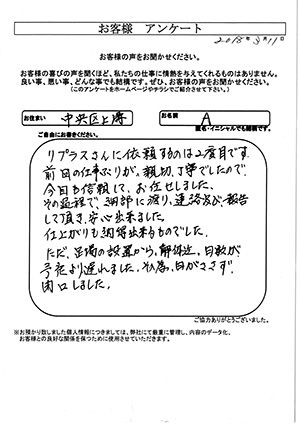 お客様 アンケート
2018年3月11日
お客様の声をお聞かせください。
お客様の喜びの声を聞くほど、私たちの仕事に情熱を与えてくれるものはありません。
良い事、悪い事、どんな事でも結構です。ぜひ、お客様の声をお聞かせください。
(このアンケートをホームページやチラシでご紹介させて下さい。)
お住まい 中央区上溝 お名前 A
匿名・イニシャルでも結構です。
ご自由にお書きください。
リプラスさんに依頼するのは2度目です。
前回の仕事ぶりが、親切、丁寧でしたので、
今回も信頼して、お任せしました。
その過程で、細部に渡り、連絡及び報告
して頂き、安心出来ました。
仕上がりも納得出来るものでした。
ただ、足場の設置から、解体迄、日数が
予定より遅れました。その為、日がささず、
閉口しました。
ご協力ありがとうございました。
※お預かり致しました個人情報につきましては、弊社にて厳重に管理し、内容のデータ化、
お客様との良好な関係を保つために使用させていただきます。